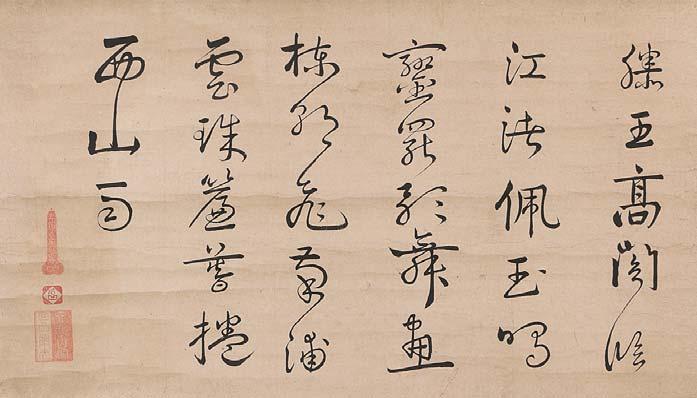 滕王高閣臨
江渚佩玉鳴
鑾罷歌舞畫
棟朝飛南浦
雲珠簾暮捲
西山雨